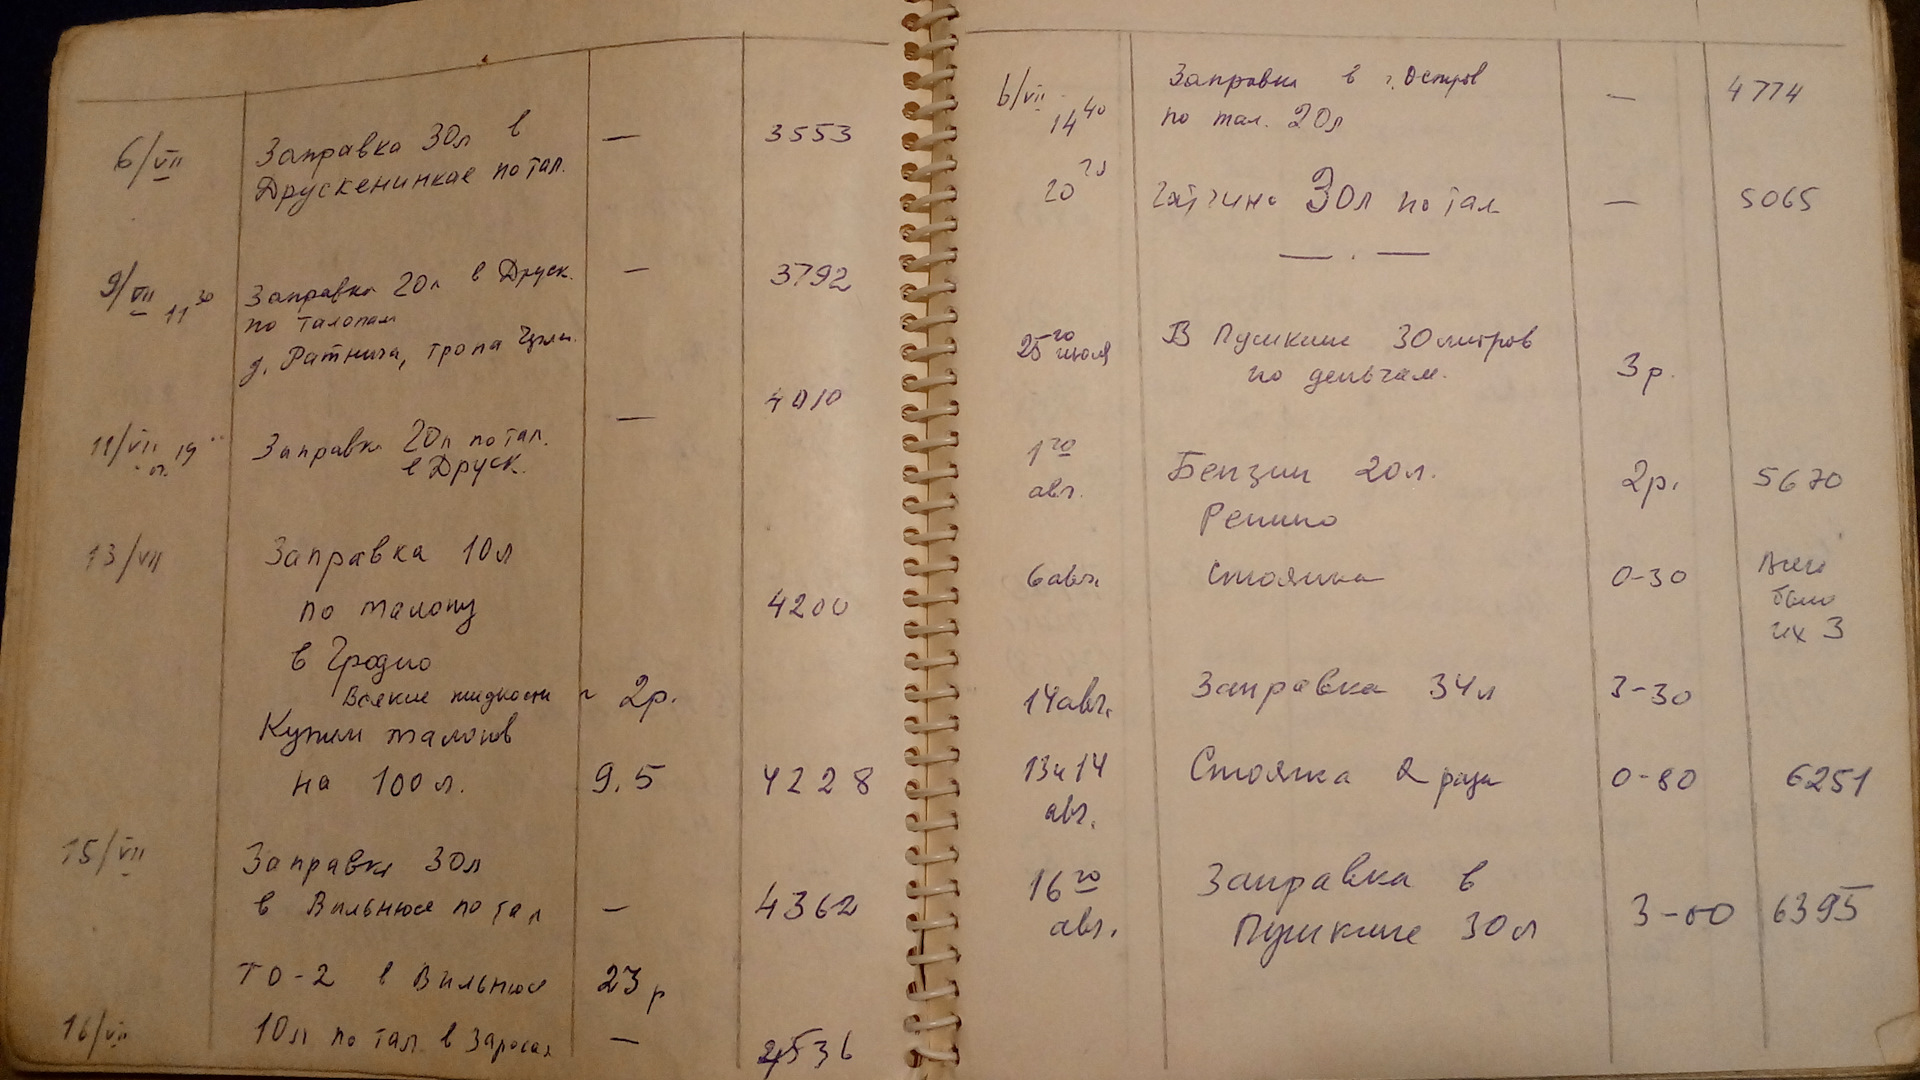 6/VII Заправка 30л в — 3553
Друскенинкае по тал.
9/VII 11 30 Заправка 20л в Друск. — 3792
по талонам
д. Ратнича, тропа
4010
11/VII 19 Заправка 20л по тал. —
в Друск.
13/VII Заправка 10л
по талону 4200
в Гродно
Всякие жидкости 2р.
Купили талонов
на 100л. 9.5 4228
15/VII Заправка 30л
в Вильнюсе по тал — 4362
ТО-2 в Вильнюсе 23р
16/VII 10л по тал в Зарасах — 4536
6/VII Заправка в г. Остров — 4774
14 40 по тал. 20л
20 Гатчина 30л по тал — 5065
— . —
25го июля В Пушкине 30 литров
по деньгам. 3р.
1го Бензин 20л. 2р. 5670
авг. Репино
6 авг. Стоянка 0-30 Всего
было
их 3
14 авг. Заправка 34л 3-30
13 и 14 Стоянка 2 раза 0-80 6251
авг.
16го Заправка в
авг. Пушкине 30л 3-00 6395